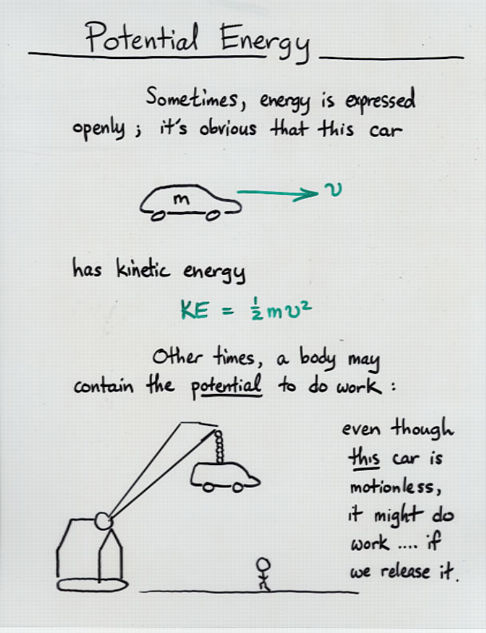 Potential Energy
Sometimes, energy is expressed
openly; it's obvious that this car
m
v
has kinetic energy
KE = ½mv²
Other times, a body may
contain the potential to do work:
even though
this car is
motionless,
it might do
work .... if
we release it.